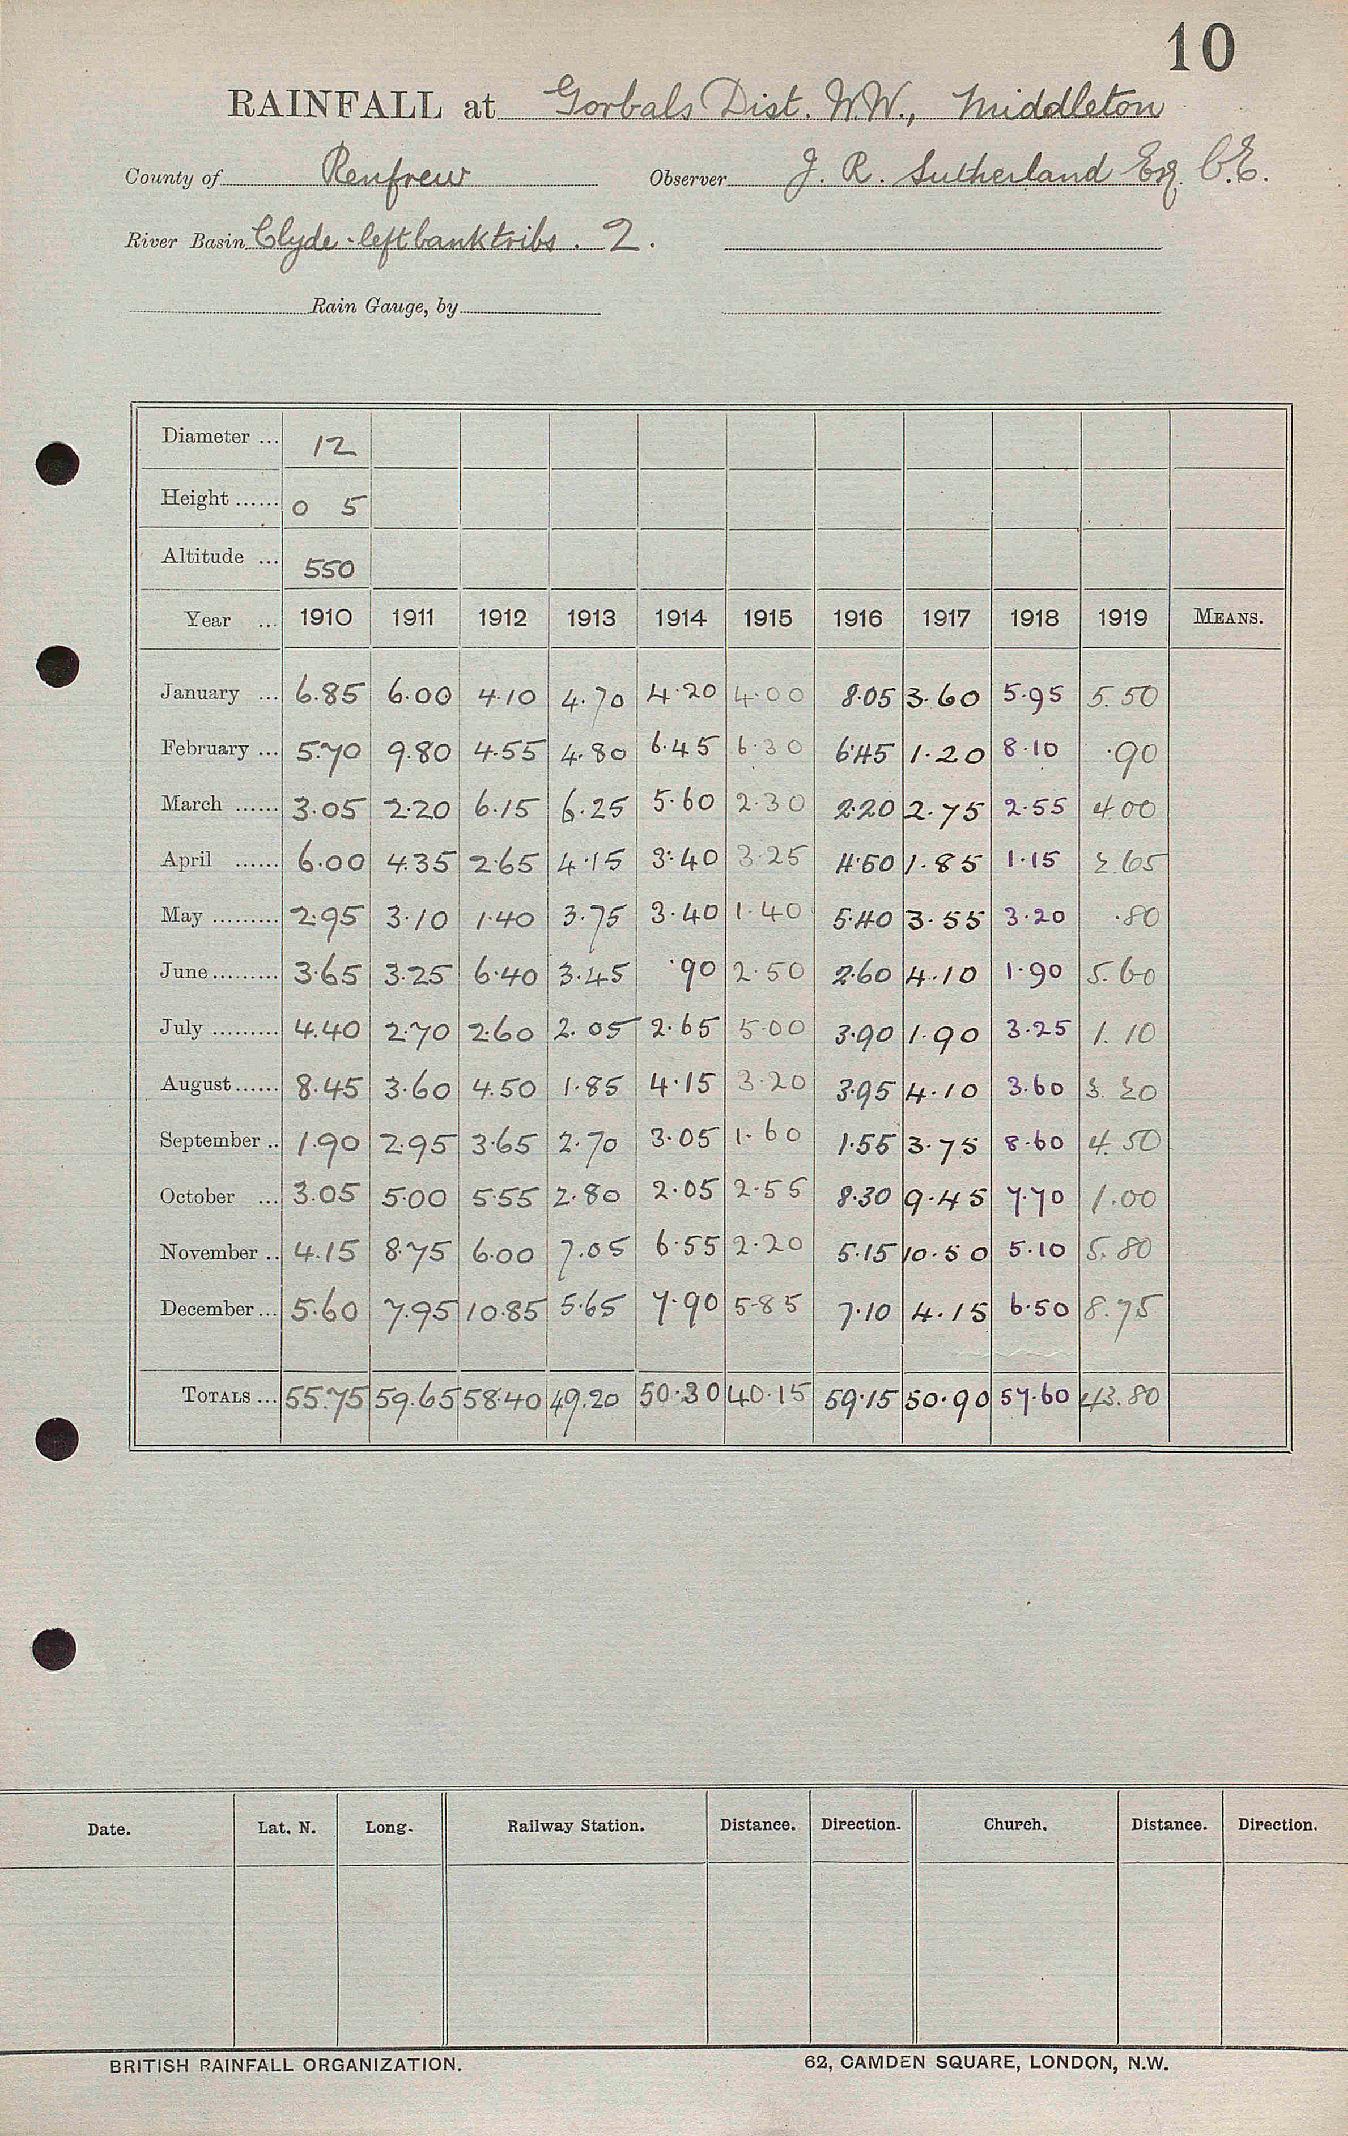 10
RAINFALL at Gorbals Dist. W.W., Middleton
County of Renfrew Observer J. R. Sutherland Esq. C.E.
River Basin Clyde - left bank tribs. 2.
Rain Gauge, by
Diameter ... 12
Height ...... 0 5
Altitude ... 550
Year ... 1910 1911 1912 1913 1914 1915 1916 1917 1918 1919 MEANS.
January ... 6.85 6.00 4.10 4.70 4.20 4.00 8.05 3.60 5.95 5.50
February ... 5.70 9.80 4.55 4.80 6.45 6.30 6.45 1.20 8.10 .90
March ...... 3.05 2.20 6.15 6.25 5.60 2.30 2.20 2.75 2.55 4.00
April ...... 6.00 4.35 2.65 4.15 3.40 3.25 4.50 1.85 1.15 2.65
May ......... 2.95 3.10 1.40 3.75 3.40 1.40 5.40 3.55 3.20 .80
June ......... 3.65 3.25 6.40 3.45 .90 2.50 2.60 4.10 1.90 5.60
July ......... 4.40 2.70 2.60 2.05 2.65 5.00 3.90 1.90 3.25 1.10
August ...... 8.45 3.60 4.50 1.85 4.15 3.20 3.95 4.10 3.60 3.20
September .. 1.90 2.95 3.65 2.70 3.05 1.60 1.55 3.75 8.60 4.50
October ... 3.05 5.00 5.55 2.80 2.05 2.55 8.30 9.45 7.70 1.00
November .. 4.15 8.75 6.00 7.05 6.55 2.20 5.15 10.50 5.10 5.80
December ... 5.60 7.95 10.85 5.65 7.90 5.85 7.10 4.15 6.50 8.75
TOTALS ... 55.75 59.65 58.40 49.20 50.30 40.15 59.15 50.90 57.60 43.80
Date. Lat. N. Long. Railway Station. Distance. Direction. Church. Distance. Direction.
BRITISH RAINFALL ORGANIZATION. 62, CAMDEN SQUARE, LONDON, N.W.